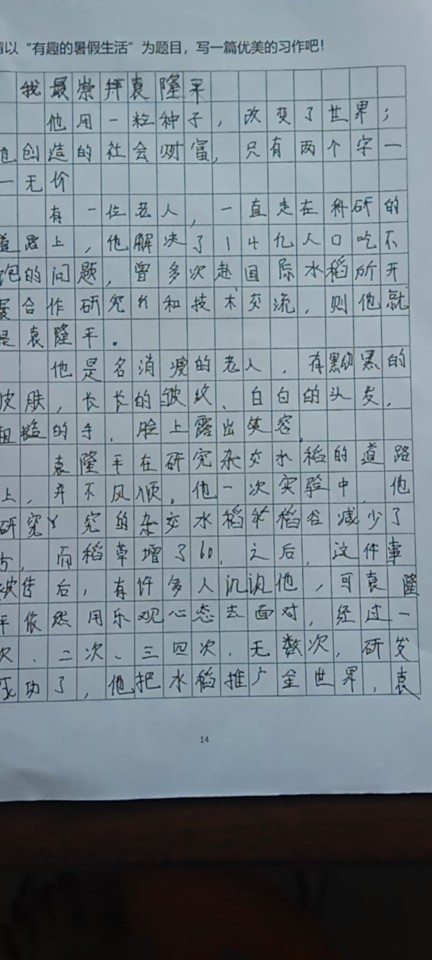 以“有趣的暑假生活”为题目，写一篇优美的习作吧！
我最崇拜袁隆平
他用一粒种子，改变了世界；
他创造的社会财富，只有两个字一
一无价
有一位老人，一直走在科研的
道路上，他解决了14亿人口吃不
饱的问题，曾多次赴国际水稻所开
展合作研究和技术交流，则他就
是袁隆平。
他是名消瘦的老人，有黝黑的
皮肤，长长的皱纹、白白的头发，
粗糙的手，脸上露出笑容。
袁隆平在研究杂交水稻的道路
上，并不风顺。他一次实验中，他
研究 究的杂交水稻 稻谷减少了
而稻草增了60，之后，这件事
被传后，有许多人讥讽他，可袁隆
平依然用乐观心态去面对，经过一
次、二次、三四次、无数次，研发
成功了，他把水稻推广全世界，袁
14